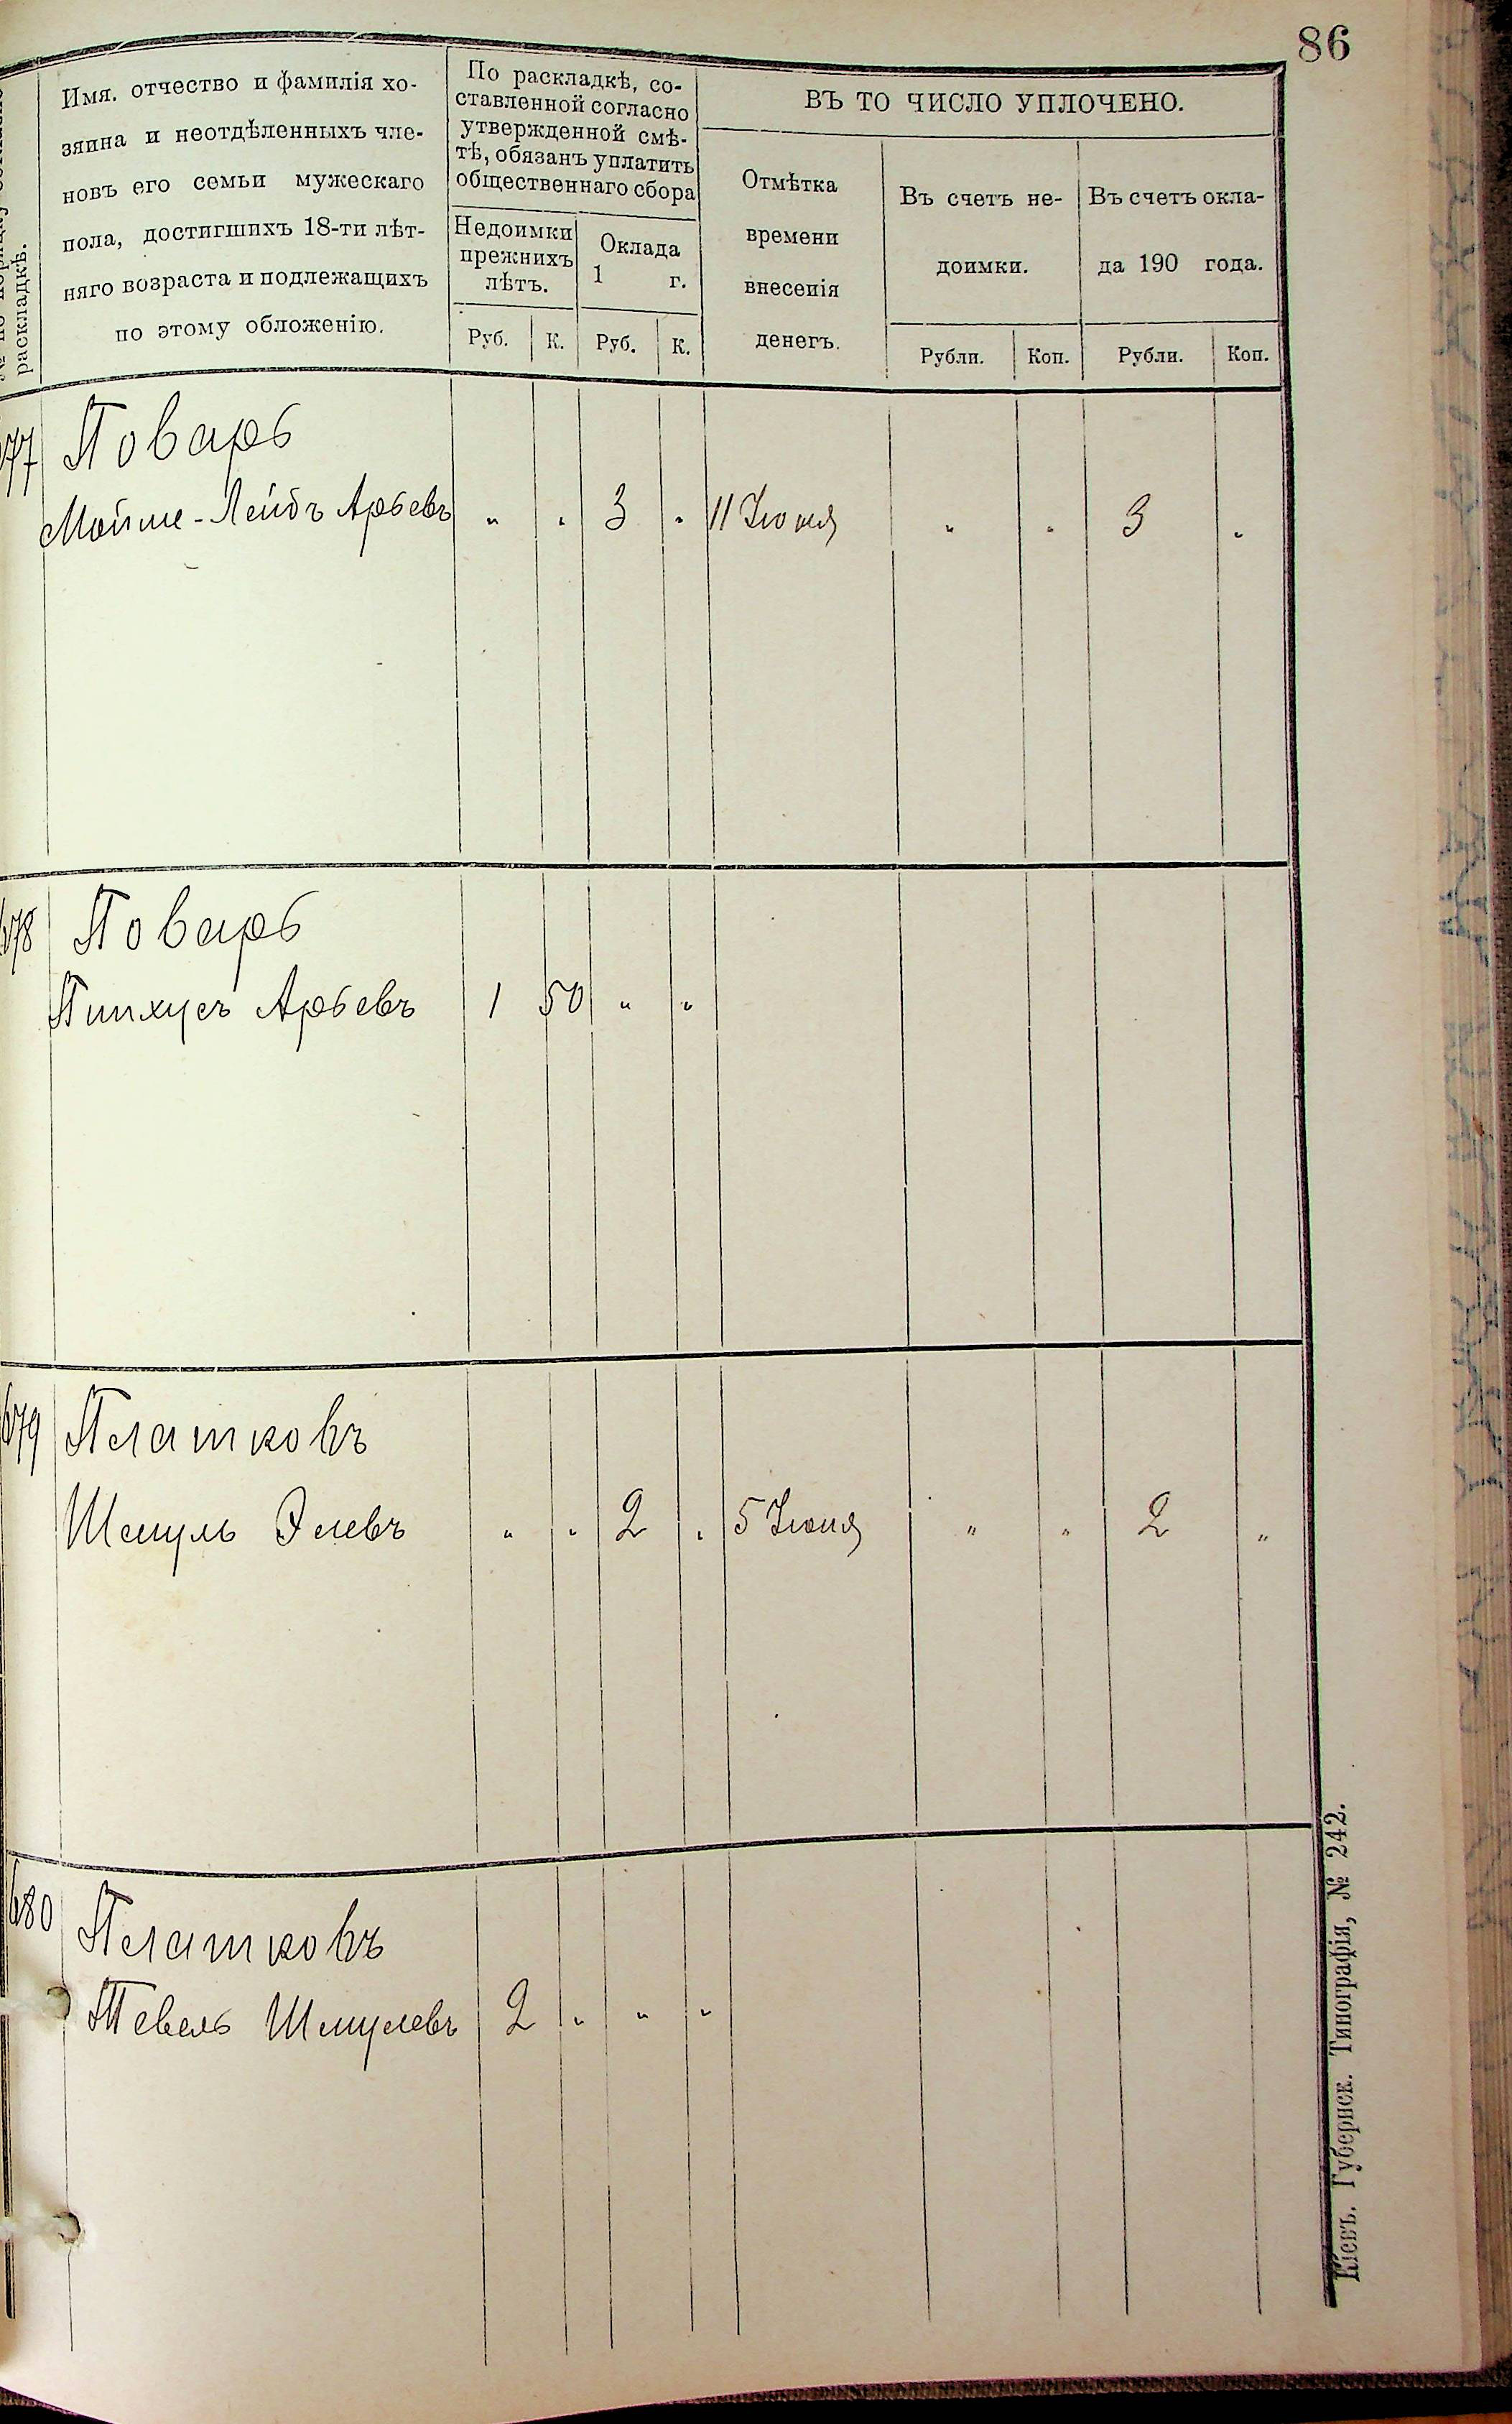 86
раскладкѣ.
Имя, отчество и фамилія хо-
зяина и неотдѣленныхъ чле-
новъ его семьи мужескаго
пола, достигшихъ 18-ти лѣт-
няго возраста и подлежащихъ
по этому обложенію.
По раскладкѣ, со-
ставленной согласно
утвержденной смѣ-
тѣ, обязанъ уплатить
общественнаго сбора
Недоимки
прежнихъ
лѣтъ.
Оклада
1 г.
Руб. К. Руб. К.
ВЪ ТО ЧИСЛО УПЛОЧЕНО.
Отмѣтка
времени
внесенія
денегъ.
Въ счетъ не-
доимки.
Въ счетъ окла-
да 190 года.
Рубли. Коп. Рубли. Коп.
677 Поварь
Мойше-Лейбъ Арьевъ " " 3 " 11 Іюня " " 3 "
678 Поварь
Пинхусъ Арьевъ 1 50 " "
679 Платковъ
Шмуль Элевъ " " 2 " 5 Іюня " " 2 "
680 Платковъ
Тевель Шмулевъ 2 " " "
Кіевъ. Губернск. Типографія, № 242.